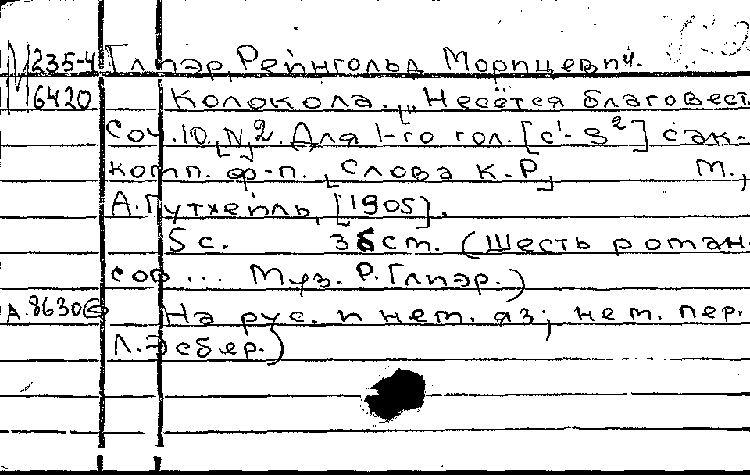 М 235-4 Глиэр, Рейнгольд Морицевич.
6420 Колокола. „Несётся благовест
Соч.10, N 2. Для 1-го гол. [c¹-g²] с ак-
комп. ф-п. [Слова К.Р.] М.,
А.Гутхейль, [1905].
5 с. 36 ст. (Шесть роман-
сов ... Муз. Р.Глиэр.)
А.8630 На рус. и нем. яз; нем. пер.
Л.Эсбер.)